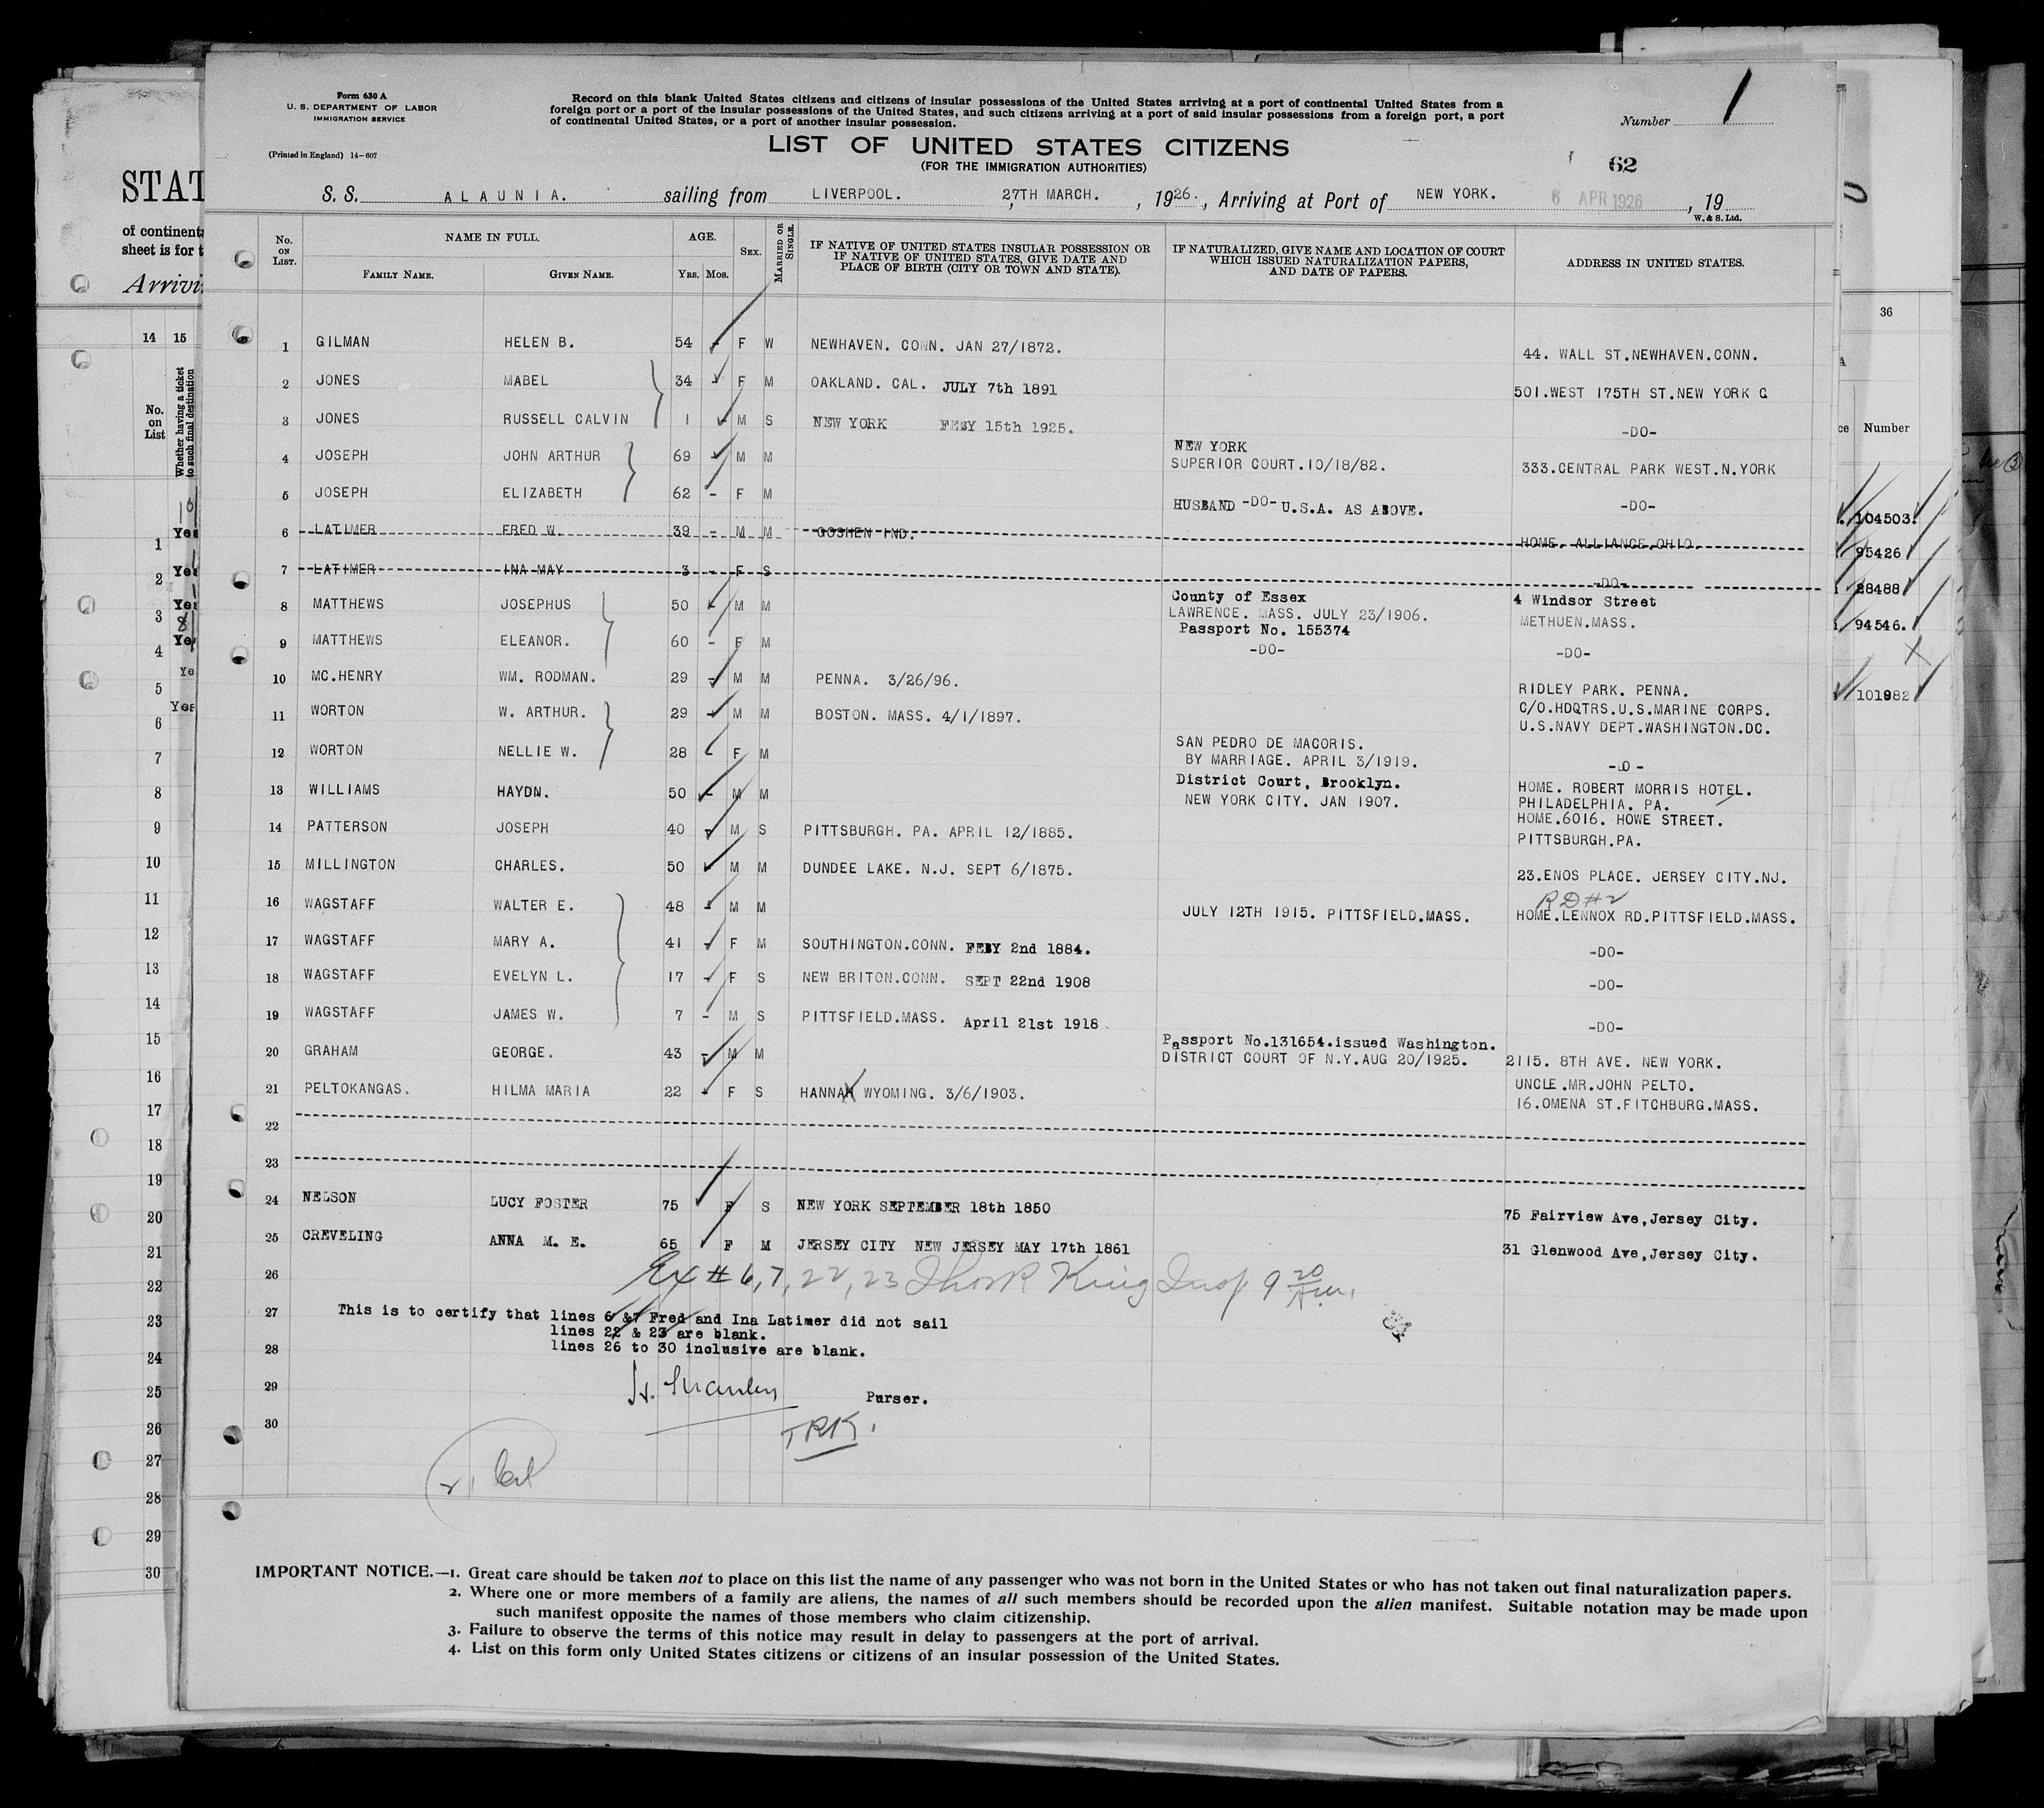 Form 630 A
U. S. DEPARTMENT OF LABOR
IMMIGRATION SERVICE
(Printed in England) 14-607
Record on this blank United States citizens and citizens of insular possessions of the United States arriving at a port of continental United States from a
foreign port or a port of the insular possessions of the United States, and such citizens arriving at a port of said insular possessions from a foreign port, a port
of continental United States, or a port of another insular possession.
Number 1
LIST OF UNITED STATES CITIZENS
(FOR THE IMMIGRATION AUTHORITIES)
62
S. S. ALAUNIA. sailing from LIVERPOOL. 27TH MARCH. , 1926. , Arriving at Port of NEW YORK. 6 APR 1926 , 19
W. & S. Ltd.
No. ON LIST. NAME IN FULL. FAMILY NAME. GIVEN NAME. AGE. YRS. MOS. SEX. MARRIED OR SINGLE.
IF NATIVE OF UNITED STATES INSULAR POSSESSION OR
IF NATIVE OF UNITED STATES, GIVE DATE AND
PLACE OF BIRTH (CITY OR TOWN AND STATE).
IF NATURALIZED, GIVE NAME AND LOCATION OF COURT
WHICH ISSUED NATURALIZATION PAPERS,
AND DATE OF PAPERS.
ADDRESS IN UNITED STATES.
1 GILMAN HELEN B. 54 - F W NEWHAVEN. CONN. JAN 27/1872. 44. WALL ST.NEWHAVEN.CONN.
2 JONES MABEL 34 - F M OAKLAND. CAL. JULY 7th 1891 501.WEST 175TH ST.NEW YORK C
3 JONES RUSSELL CALVIN 1 - M S NEW YORK FEBY 15th 1925. -DO-
4 JOSEPH JOHN ARTHUR 69 - M M NEW YORK
SUPERIOR COURT.10/18/82. 333.CENTRAL PARK WEST.N.YORK
5 JOSEPH ELIZABETH 62 - F M HUSBAND -DO- U.S.A. AS ABOVE. -DO-
6 LATIMER FRED W. 39 - M M GOSHEN IND. HOME. ALLIANCE,OHIO.
7 LATIMER INA MAY 3 - F S -DO-
8 MATTHEWS JOSEPHUS 50 - M M County of Essex 4 Windsor Street
LAWRENCE. MASS. JULY 23/1906. METHUEN.MASS.
Passport No. 155374
9 MATTHEWS ELEANOR. 60 - F M -DO- -DO-
10 MC.HENRY WM. RODMAN. 29 - M M PENNA. 3/26/96. RIDLEY PARK. PENNA.
11 WORTON W. ARTHUR. 29 - M M BOSTON. MASS. 4/1/1897. C/O.HDQTRS.U.S.MARINE CORPS.
U.S.NAVY DEPT.WASHINGTON.DC.
12 WORTON NELLIE W. 28 - F M SAN PEDRO DE MACORIS.
BY MARRIAGE. APRIL 3/1919. -DO-
13 WILLIAMS HAYDN. 50 - M M District Court, Brooklyn. HOME. ROBERT MORRIS HOTEL.
NEW YORK CITY. JAN 1907. PHILADELPHIA. PA.
14 PATTERSON JOSEPH 40 - M S PITTSBURGH. PA. APRIL 12/1885. HOME.6016. HOWE STREET.
PITTSBURGH.PA.
15 MILLINGTON CHARLES. 50 - M M DUNDEE LAKE. N.J. SEPT 6/1875. 23.ENOS PLACE. JERSEY CITY.NJ.
RD#2
16 WAGSTAFF WALTER E. 48 - M M JULY 12TH 1915. PITTSFIELD.MASS. HOME.LENNOX RD.PITTSFIELD.MASS.
17 WAGSTAFF MARY A. 41 - F M SOUTHINGTON.CONN. FEBY 2nd 1884. -DO-
18 WAGSTAFF EVELYN L. 17 - F S NEW BRITON.CONN. SEPT 22nd 1908 -DO-
19 WAGSTAFF JAMES W. 7 - M S PITTSFIELD.MASS. April 21st 1918. -DO-
20 GRAHAM GEORGE. 43 - M M Passport No.131654.issued Washington.
DISTRICT COURT OF N.Y.AUG 20/1925. 2115. 8TH AVE. NEW YORK.
21 PELTOKANGAS. HILMA MARIA 22 - F S HANNAH WYOMING. 3/6/1903. UNCLE.MR.JOHN PELTO.
16.OMENA ST.FITCHBURG.MASS.
22
23
24 NELSON LUCY FOSTER 75 F S NEW YORK SEPTEMBER 18th 1850 75 Fairview Ave,Jersey City.
25 CREVELING ANNA M. E. 65 F M JERSEY CITY NEW JERSEY MAY 17th 1861 31 Glenwood Ave,Jersey City.
26 Ex # 6, 7, 22, 23 King Insp 9 20 Am.
27 This is to certify that lines 6 &7 Fred and Ina Latimer did not sail
lines 22 & 23 are blank.
28 lines 26 to 30 inclusive are blank.
29 Purser.
30 TRK.
IMPORTANT NOTICE.—1. Great care should be taken not to place on this list the name of any passenger who was not born in the United States or who has not taken out final naturalization papers.
2. Where one or more members of a family are aliens, the names of all such members should be recorded upon the alien manifest. Suitable notation may be made upon
such manifest opposite the names of those members who claim citizenship.
3. Failure to observe the terms of this notice may result in delay to passengers at the port of arrival.
4. List on this form only United States citizens or citizens of an insular possession of the United States.
STAT
of continenta
sheet is for t
Arrivi
14 15
No. on List
Whether having a ticket to such final destination
Yes
Yes
Yes
Yes
Yes
1
2
3
4
5
6
7
8
9
10
11
12
13
14
15
16
17
18
19
20
21
22
23
24
25
26
27
28
29
30
36
Number
104503.
95426
28488
94546.
101982